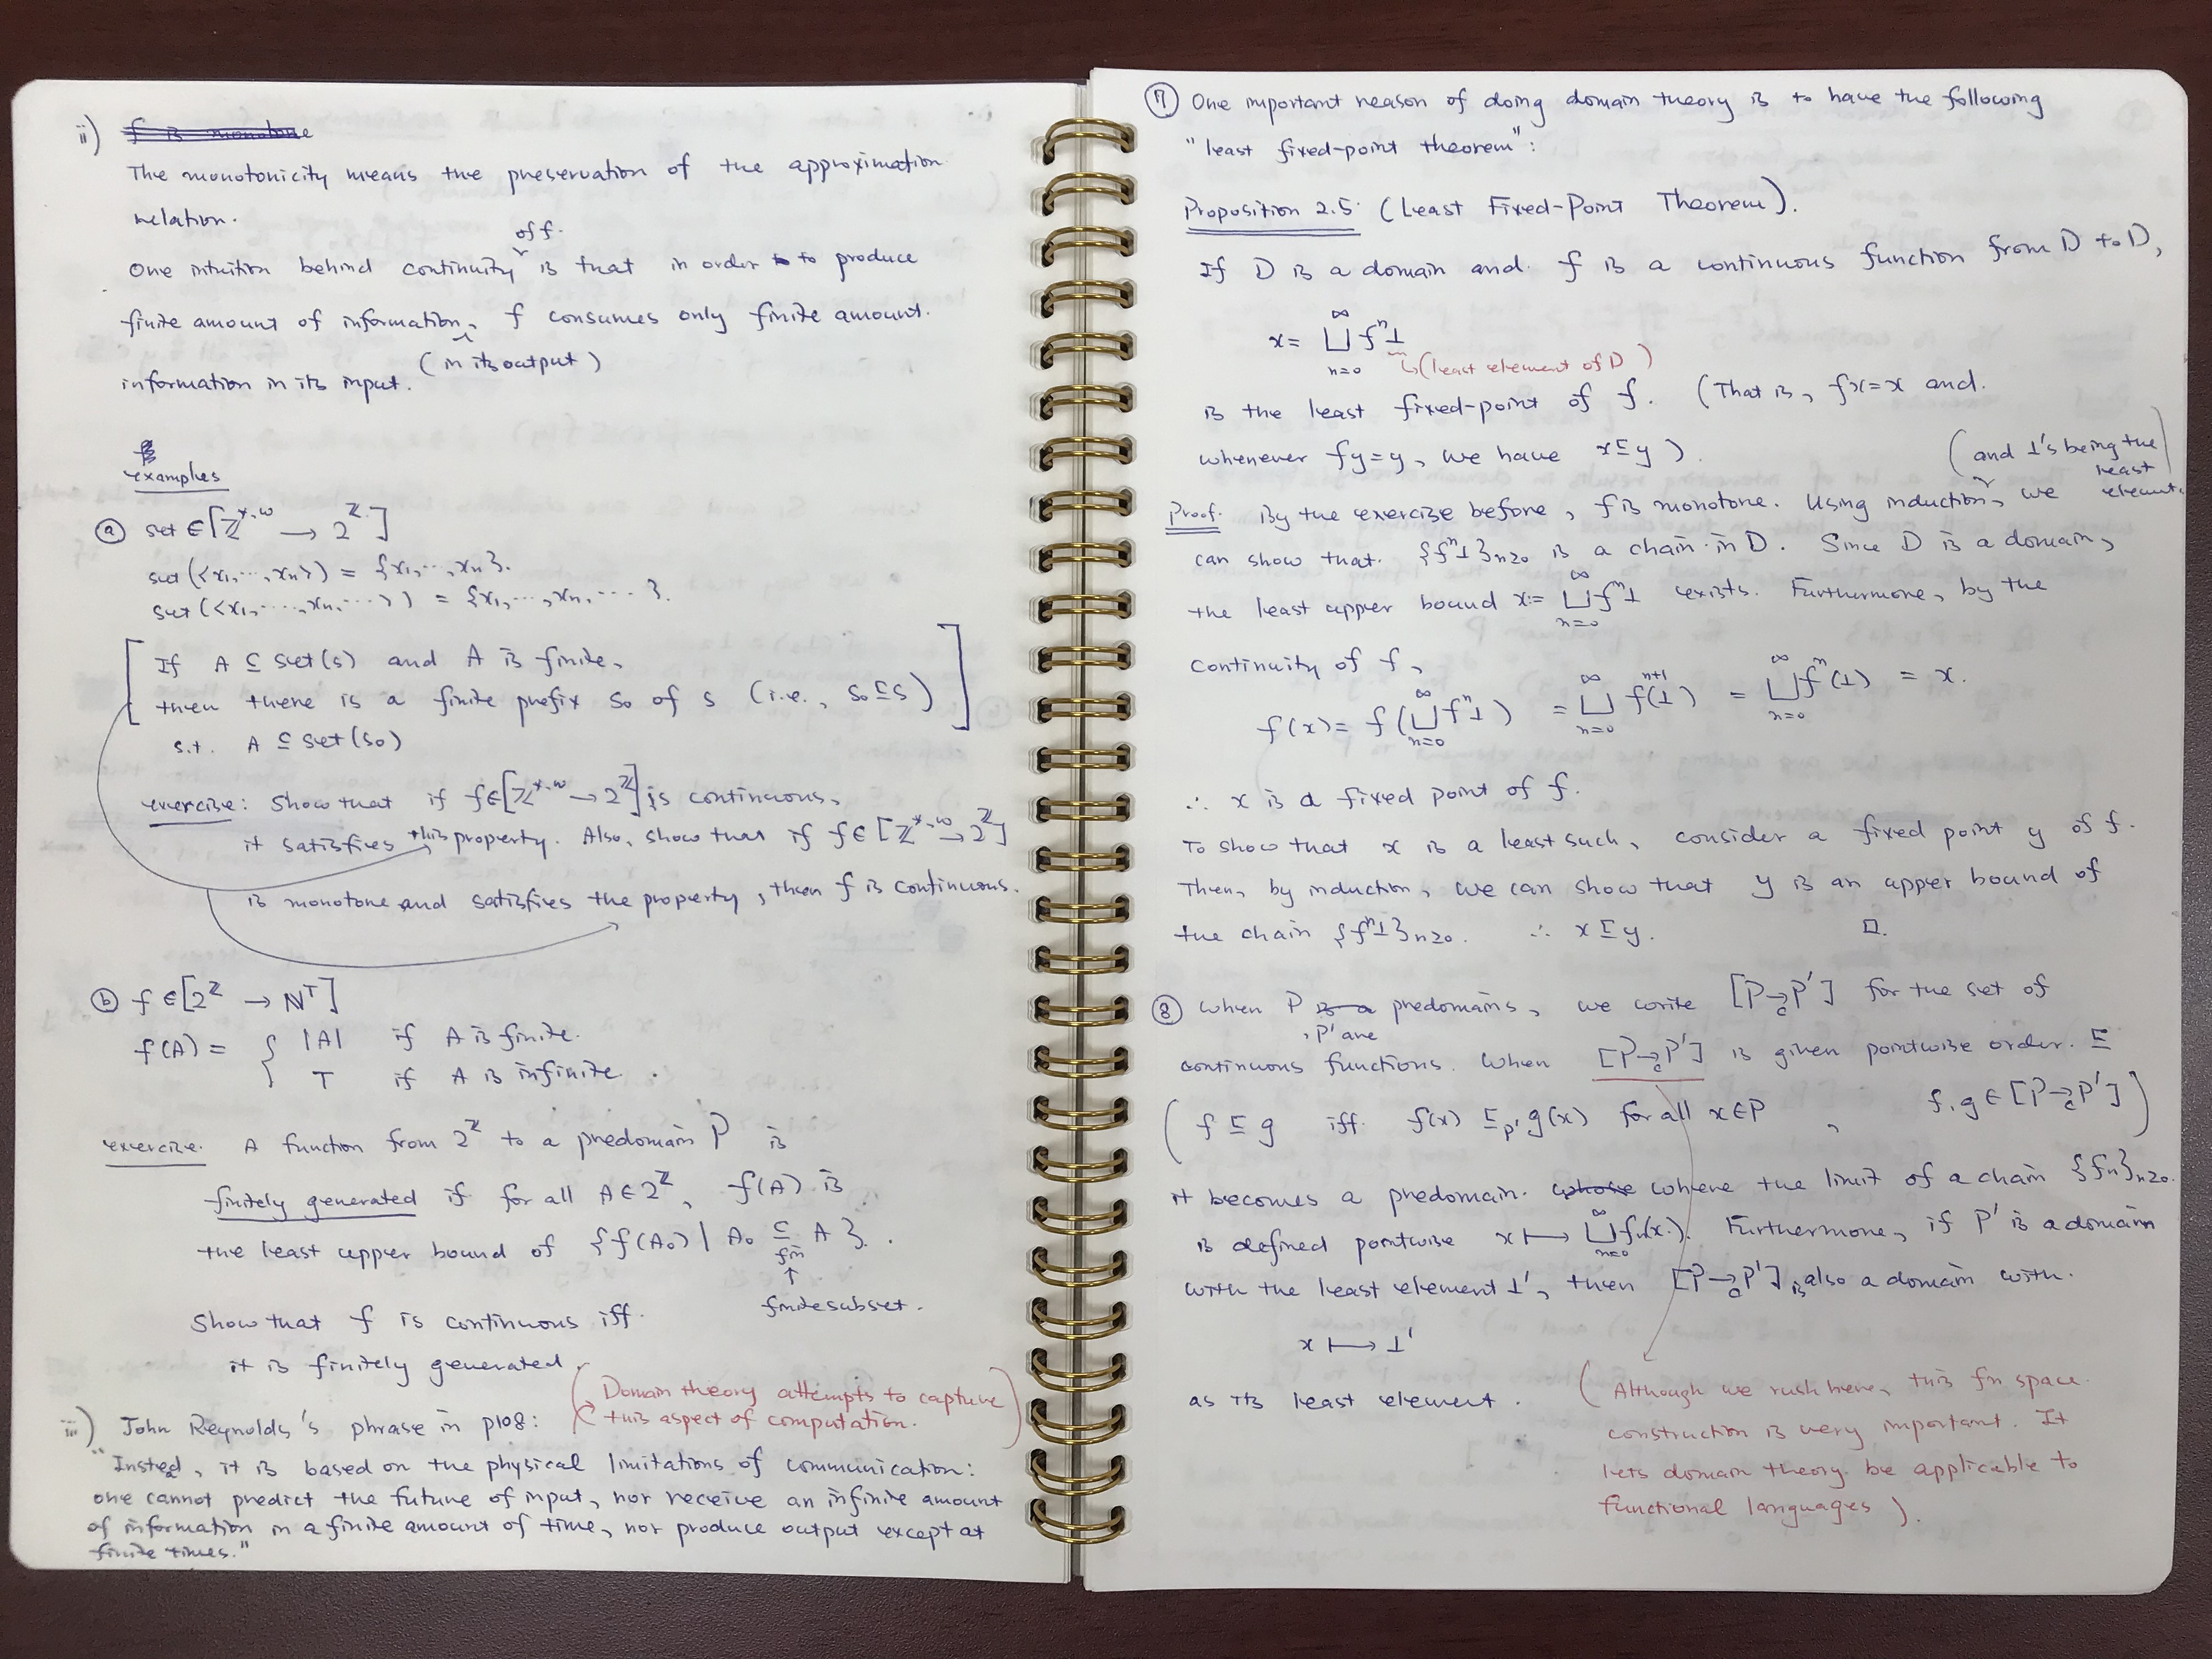 ii) f is monotone
The monotonicity means the preservation of the approximation
relation.
of f.
One intuition behind continuity is that in order to produce
finite amount of information, f consumes only finite amount.
(in its output)
information in its input.
examples
ⓐ set ∈ [ℤ*,ω → 2^ℤ]
set(<x₁,...,xₙ>) = {x₁,...,xₙ}.
set(<x₁,....,xₙ,...>) = {x₁,...,xₙ,....}.
If A ⊆ set(s) and A is finite,
then there is a finite prefix s₀ of s (i.e., s₀ ⊑ s)
s.t. A ⊆ set(s₀)
exercise: Show that if f∈[ℤ*,ω → 2^ℤ] is continuous,
it satisfies this property. Also, show that if f∈[ℤ*,ω → 2^ℤ]
is monotone and satisfies the property, then f is continuous.
ⓑ f∈[2^ℤ → ℕ^⊤]
f(A) = { |A| if A is finite.
⊤ if A is infinite.
exercise. A function from 2^ℤ to a predomain P is
finitely generated if for all A∈2^ℤ, f(A) is
the least upper bound of {f(A₀) | A₀ ⊆ A}.
fin
↑
finite subset.
Show that f is continuous iff
it is finitely generated.
(Domain theory attempts to capture
this aspect of computation.)
iii) John Reynolds's phrase in p108:
"Instead, it is based on the physical limitations of communication:
one cannot predict the future of input, nor receive an infinite amount
of information in a finite amount of time, nor produce output except at
finite times."
⑦ One important reason of doing domain theory is to have the following
"least fixed-point theorem":
Proposition 2.5. (Least Fixed-Point Theorem).
If D is a domain and f is a continuous function from D to D,
x = ⊔_{n=0}^∞ fⁿ⊥
↳(least element of D)
is the least fixed-point of f. (That is, fx=x and
whenever fy=y, we have x⊑y).
(and ⊥'s being the least element)
Proof. By the exercise before, f is monotone. Using induction, we
can show that {fⁿ⊥}n≥0 is a chain in D. Since D is a domain,
the least upper bound x = ⊔_{n=0}^∞ fⁿ⊥ exists. Furthermore, by the
continuity of f,
f(x) = f(⊔_{n=0}^∞ fⁿ⊥) = ⊔_{n=0}^∞ fⁿ⁺¹(⊥) = ⊔_{n=0}^∞ fⁿ(⊥) = x.
∴ x is a fixed point of f.
To show that x is a least such, consider a fixed point y of f.
Then, by induction, we can show that y is an upper bound of
the chain {fⁿ⊥}n≥0. ∴ x⊑y. □.
⑧ When P is a predomains, we write [P →c P'] for the set of
, P' are
continuous functions. When [P →c P'] is given pointwise order ⊑
(f ⊑ g iff f(x) ⊑P' g(x) for all x∈P, f,g∈[P →c P'])
it becomes a predomain. whose where the limit of a chain {fn}n≥0
is defined pointwise x ↦ ⊔_{n=0}^∞ fn(x). Furthermore, if P' is a domain
with the least element ⊥', then [P →c P'] is also a domain with
x ↦ ⊥'
as its least element.
(Although we rush here, this fn space
construction is very important. It
lets domain theory be applicable to
functional languages).